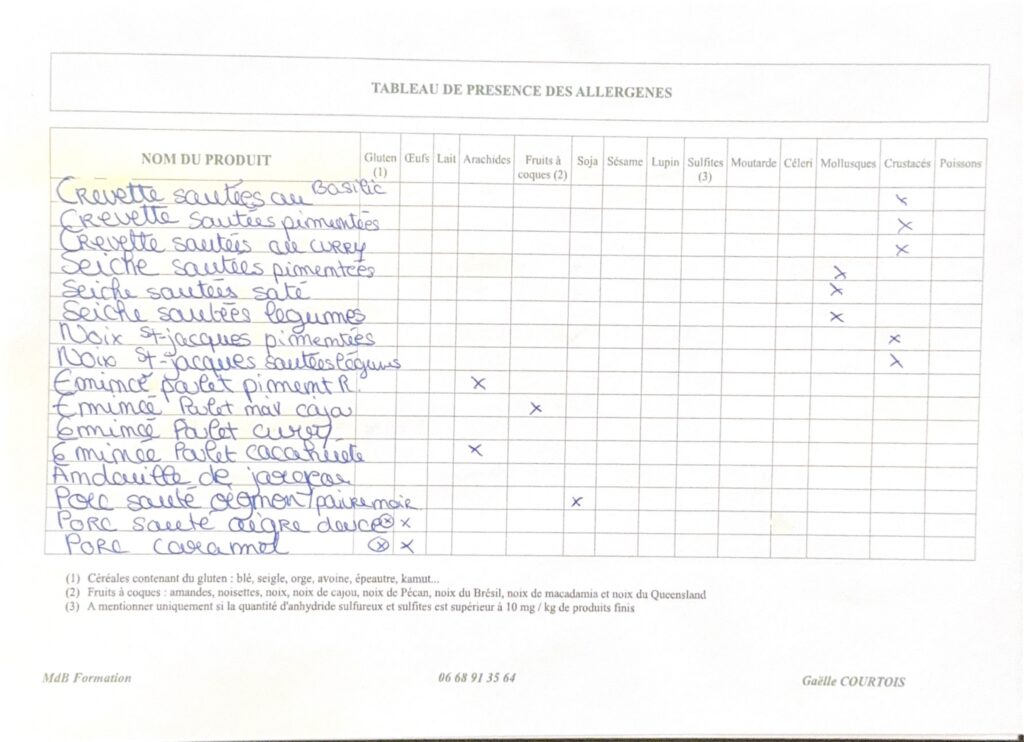 TABLEAU DE PRESENCE DES ALLERGENES
NOM DU PRODUIT Gluten (1) Œufs Lait Arachides Fruits à coques (2) Soja Sésame Lupin Sulfites (3) Moutarde Céleri Mollusques Crustacés Poissons
Crevette sautées au Basilic x
Crevette sautées pimentées x
Crevette sautées au curry x
Seiche sautées pimentées x
Seiche sautées saté x
Seiche sautées légumes x
Noix St-jacques pimentées x
Noix St-jacques sautées légums x
Emincé poulet piment R. x
Emincé Poulet x
Emincé Poulet curry
Emincé Poulet cacahuète x
Andouille de
Porc sauté x
Porc sauté aigre douce ⓧ x
Porc caramel ⓧ x
(1) Céréales contenant du gluten : blé, seigle, orge, avoine, épeautre, kamut...
(2) Fruits à coques : amandes, noisettes, noix, noix de cajou, noix de Pécan, noix du Brésil, noix de macadamia et noix du Queensland
(3) A mentionner uniquement si la quantité d'anhydride sulfureux et sulfites est supérieur à 10 mg / kg de produits finis
MdB Formation 06 68 91 35 64 Gaëlle COURTOIS